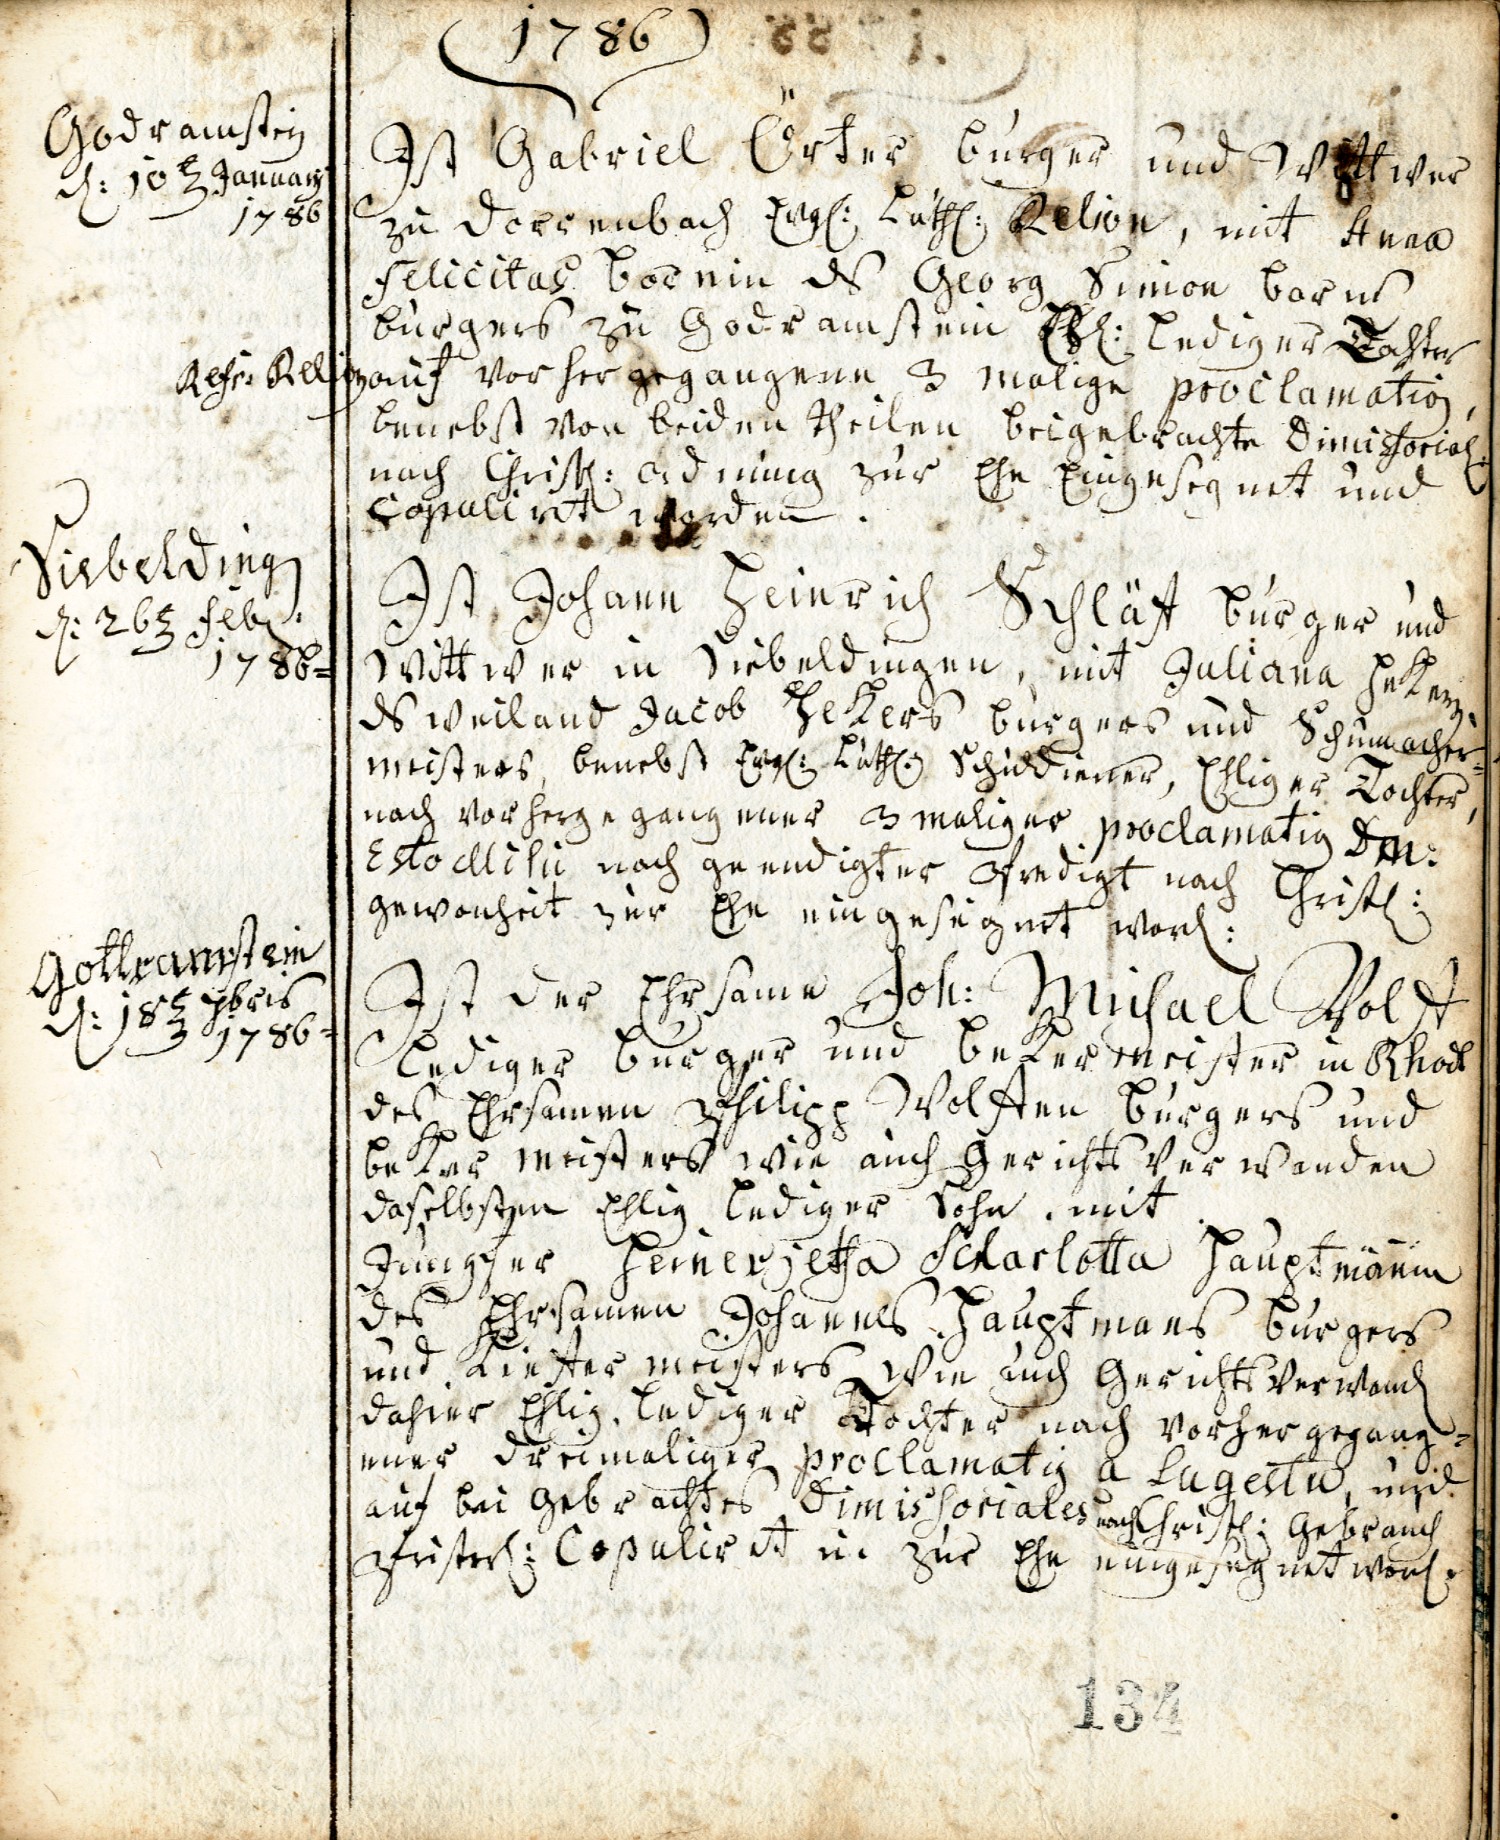 1786
Godramstein
d: 10t January
1786
Ist Gabriel Örter burger und Wittwer
zu Dorrenbach Evgl: Luthl: Relion, mit Anna
Felicitas Bornin ds Georg Simon borns
burgers zu Godramstein Ehl: lediger Tochter
Refr: Religion auf vorhergegangene 3 malige proclamation,
benebst von beiden theilen beigebrachte Dimissorial:
nach Christl: ordnung zur Ehe Eingesegnet und
Copulirt worden.
Siebelding
d: 26t Feb:
1786=
Ist Johann Heinrich Schläft burger und
Wittwer in Siebeldingen, mit Juliana Hekerin,
ds weiland Jacob Hekers burgers und Schumacher=
meisters, benebst Evgl: Luthl: Schuldiener, Ehliger Tochter,
nach vorhergegangener 3 maliger proclamation Dm:
Esto Mihi nach geendigter Predigt nach Christl:
gewonheit zur Ehe eingesegnet word:
Gottramstein
d: 18t pbris
1786=
Ist der Ehrsame Joh: Michael Wolff
lediger burger und beker meister in Rhodt
des Ehrsamen Philipp Wolffen burgers und
beker meisters wie auch Gerichts Verwanden
daselbsten Ehlig lediger Sohn, mit
Jungfer Heinerjetha Scharlotta Hauptmännin
des Ehrsamen Johannes Hauptmans burgers
und Kieffer meisters wie auch Gerichts Verwand
dahier Ehlig. lediger Tochter nach vorhergegang=
ener dreimaliger proclamation a Sugestu, und
auf bei gebrachtes Dimissoriales nach Christl: Gebrauch
Copulirt u. zur Ehe eingesegnet word:
134